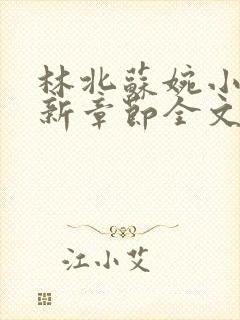 林北蘇婉小
新章節全文
江小艾